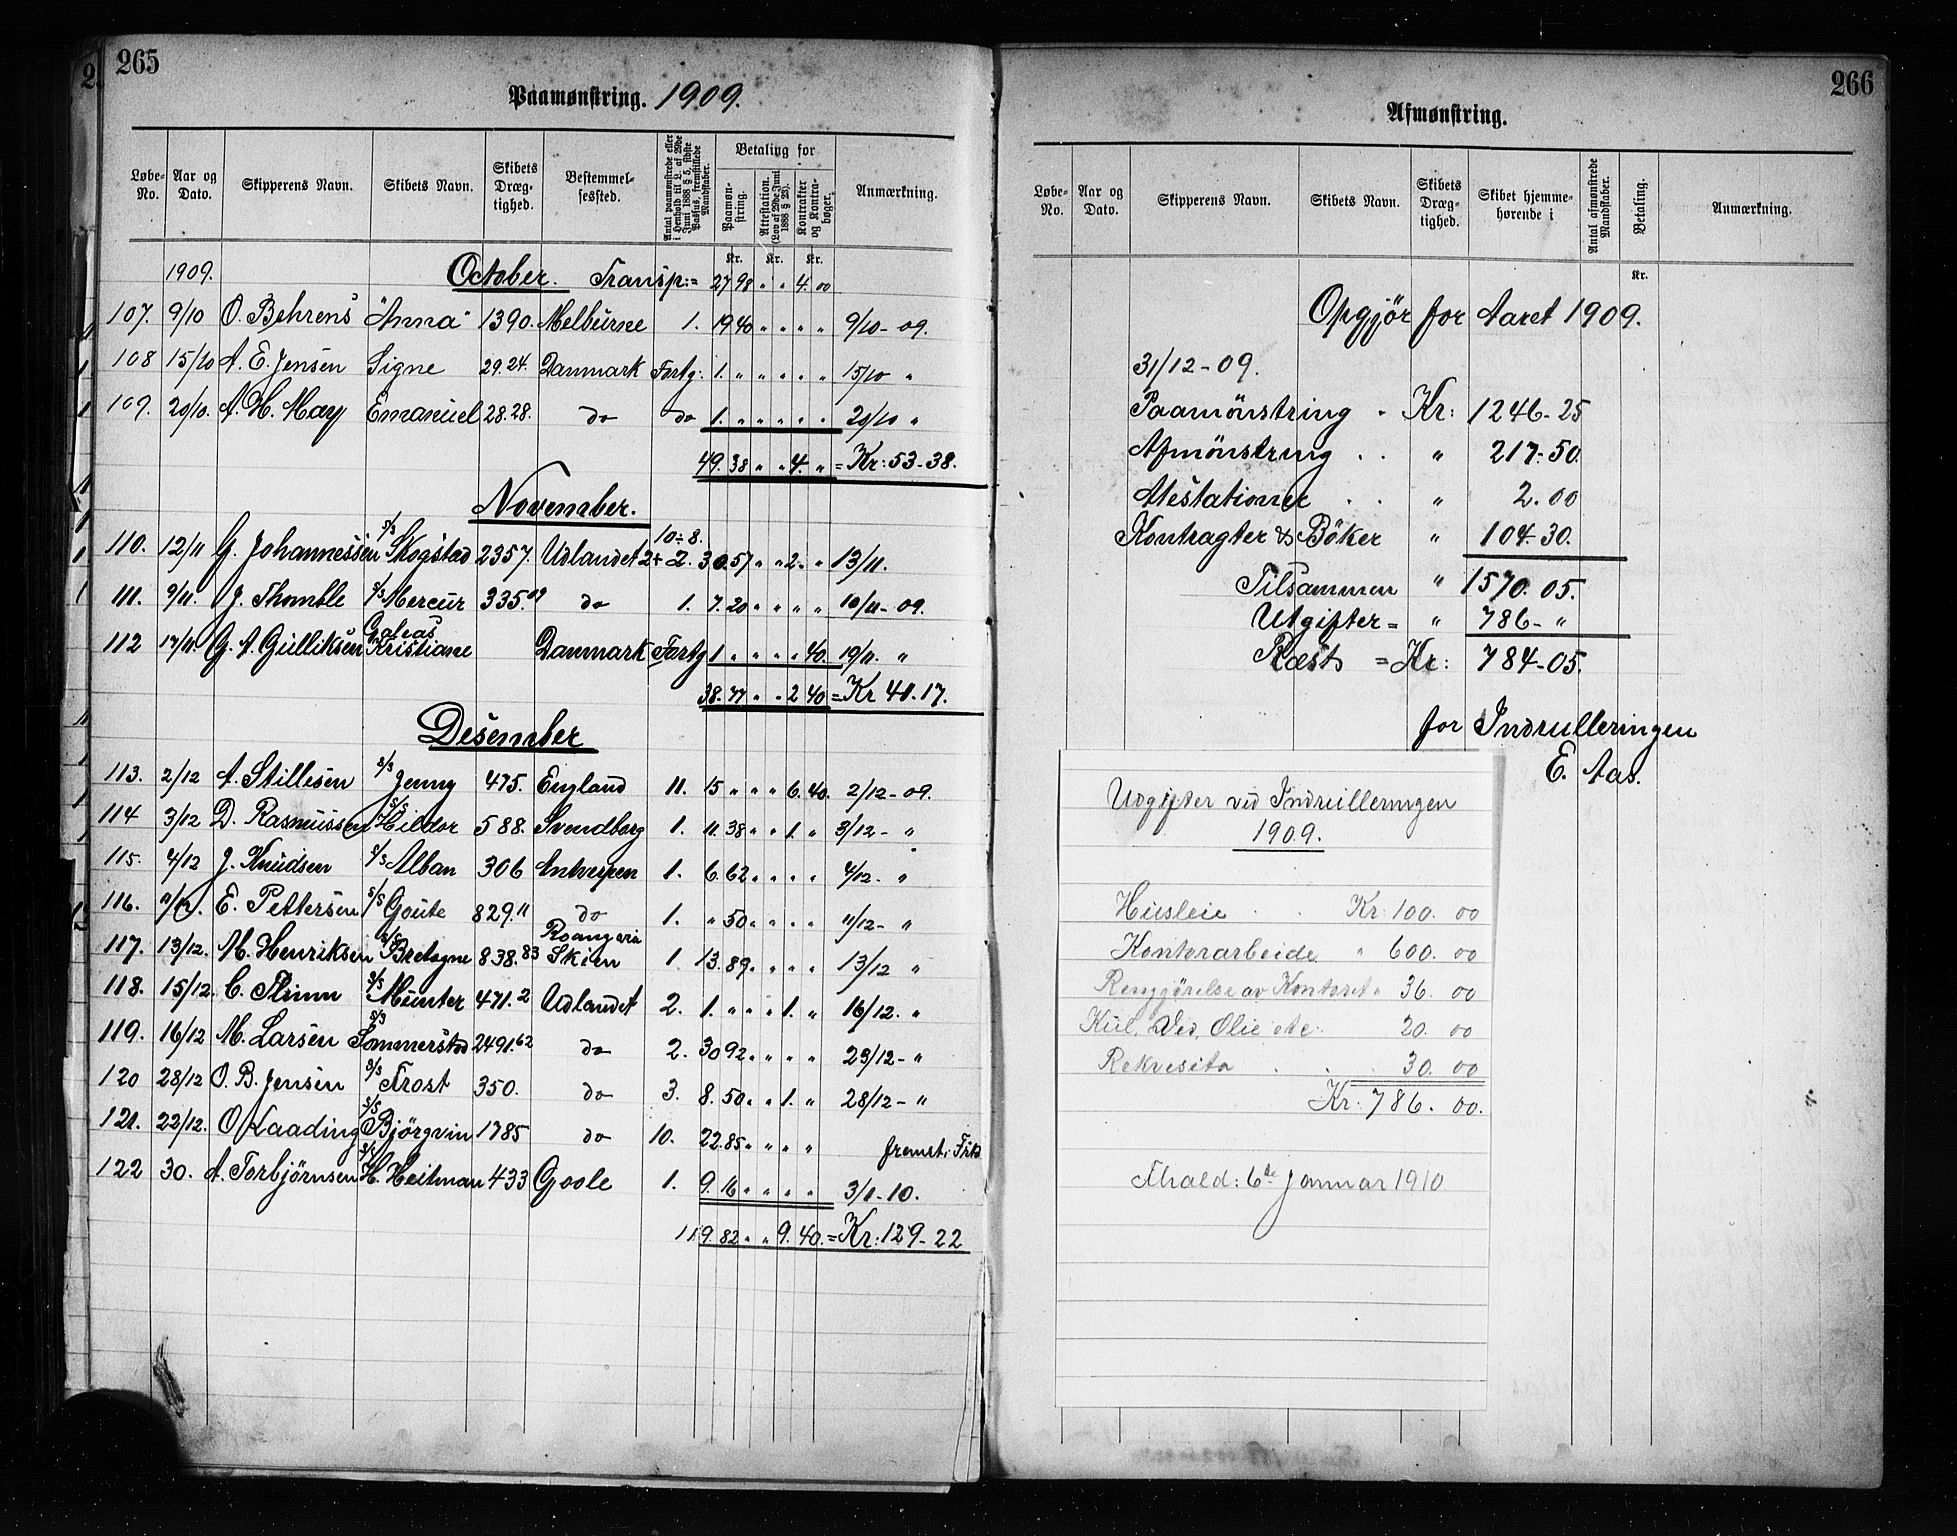 265
Paamønstring. 1909.
Løbe-No. Aar og Dato. Skipperens Navn. Skibets Navn. Skibets Dræg-tighed. Bestemmel-sessted. Antal paamønstrede eller i Henhold til L. af 29de Juni 1888 § 5, sidste Passus, fremstillede Mandskaber. Betaling for Paamøn-string. Attestation. (Lov af 29de Juni 1888 § 23). Kontrakter og Kontra-bøger. Anmærkning.
Kr. Kr. Kr.
1909. October. Transp:= 27 98 " " 4. 00
107. 9/10 O. Behrens "Anna" 1390. Melburne 1. 19.40 " " " " 9/10-09.
108 15/10 A. E. Jensen Signe 29.24. Danmark Fortg: 1. " " " " " 15/10 "
109. 20/10. A. H. May Emanuel 28.28. do do 1. " " " " " 20/10 "
49.38 " " 4. " = Kr: 53-38.
November.
10÷8.
110. 12/11 G. Johannessen S/S Skogstad 2357. Udlandet 2+2. 30.57 " " 2. " 13/11.
111. 9/11. J. Thomble S/S Mercur 335.09 do 1. 7.20 " " " " 10/11-09.
112 17/11. G. A. Gulliksen Galeas Kristiane Danmark Fortg 1 " " " " 40. 19/11. "
38.77 " " 2 40 = Kr 41.17.
Desember
113. 2/12 A. Stillesen S/S Jenny 475. England 11. 15 " " " 6.40. 2/12-09.
114 3/12 D. Rasmussen S/S Hildor 588. Svendborg 1. 11.38 " " 1. " 3/12- "
115. 4/12 J. Knudsen S/S Alban 306 Antverpen 1. 6.62 " " " " 4/12- "
116. 11/12. E. Pettersen S/S Goute 829.11 do 1. " 50 " " " " 11/12- "
117. 13/12. M. Henriksen S/S Bretagne 838.83 via Skien 1. 13.89 " " " " 13/12 "
118. 15/12. C. Thinn S/S Munter 471.2 Udlandet 2. 1. " " " 1. " 16/12. "
119. 16/12 M. Larsen S/S Sommerstad 2491.62 do 2. 30 92 " " " " 23/12- "
120 28/12 O. B. Jensen S/S Frost 350. do 3. 8.50 " " 1. " 28/12- "
121. 22/12. O. Kaading S/S Bjørgvin 1785 do 10. 22.85 " " " "
122 30. A. Torbjørnsen S/S H. Heitman 433 Goole 1. 9.16 " " " " 3/1-10.
119.82 " " 9.40. = Kr: 129-22
266
Afmønstring.
Løbe-No. Aar og Dato. Skipperens Navn. Skibets Navn. Skibets Dræg-tighed. Skibet hjemme-hørende i Antal afmønstrede Mandskaber. Betaling. Anmærkning.
Kr.
Opgjör for Aaret 1909.
31/12-09.
Paamönstring . Kr: 1246-25
Afmönstring . . " 217-50.
Atestationer . . " 2.00
Kontragter & Böker " 104.30.
Tilsammen " 1570.05.
Utgifter = " 786- "
Ræst = Kr: 784-05.
for Indrulleringen
E. Aas.
Udgifter ved Indrulleringen
1909.
Husleie . . Kr: 100. 00
Kontorarbeide " 600. 00
Rengjörelse av Kontoret " 36. 00
Kul, Ved, Olie etc: 20. 00
Rekvesita . . . 30. 00
Kr: 786. 00.
Fhald: 6te Januar 1910